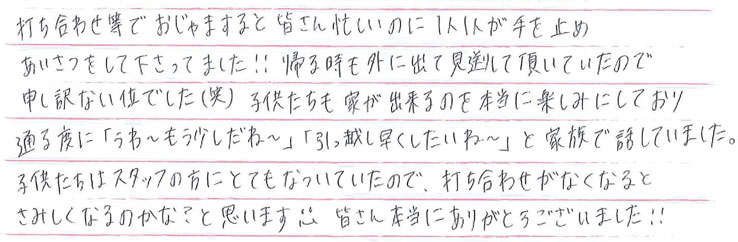 打ち合わせ等でおじゃますると皆さん忙しいのに1人1人が手を止め
あいさつをして下さってました!! 帰る時も外に出て見送して頂いていたので
申し訳ない位でした(笑) 子供たちも家が出来るのを本当に楽しみにしており
通る度に「うわ〜もう少しだね〜」「引っ越し早くしたいね〜」と家族で話していました。
子供たちはスタッフの方にとてもなついていたので、打ち合わせがなくなると
さみしくなるのかな?と思います 皆さん本当にありがとうございました!!